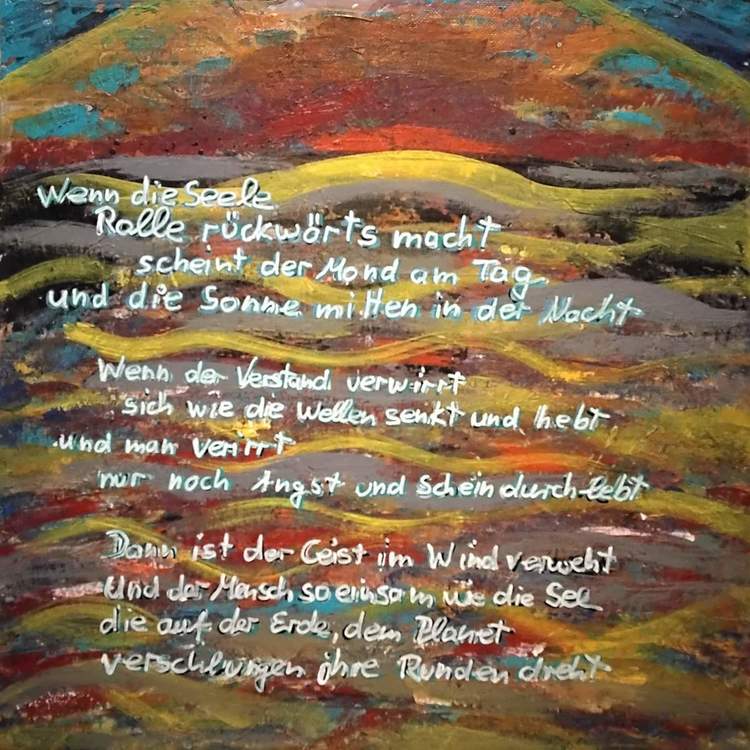 Wenn die Seele
Rolle rückwärts macht
scheint der Mond am Tag
und die Sonne mitten in der Nacht
Wenn der Verstand verwirrt
sich wie die Wellen senkt und hebt
und man verirrt
nur noch Angst und Schein durch-lebt
Dann ist der Geist im Wind verweht
Und der Mensch so einsam wie die See
die auf der Erde, dem Planet
verschlungen ihre Runden dreht